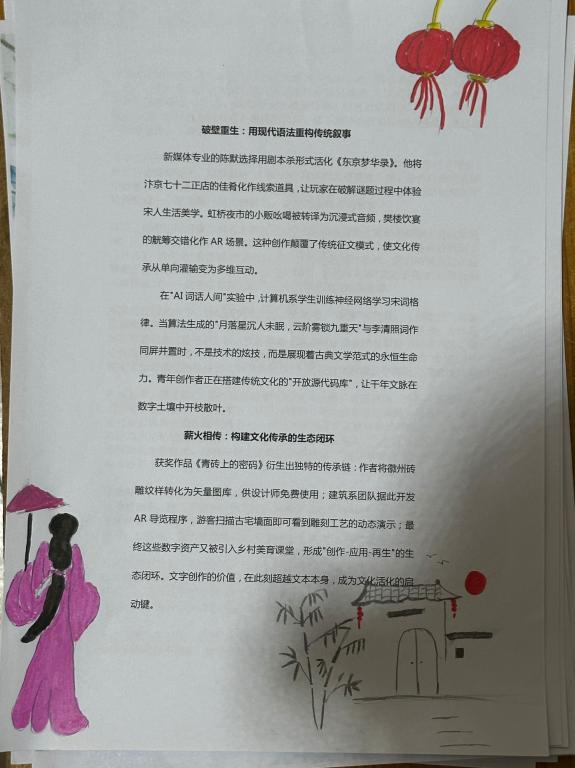 破壁重生：用现代语法重构传统叙事
新媒体专业的陈默选择用剧本杀形式活化《东京梦华录》。他将
汴京七十二正店的佳肴化作线索道具，让玩家在破解谜题过程中体验
宋人生活美学。虹桥夜市的小贩吆喝被转译为沉浸式音频，樊楼饮宴
的觥筹交错化作 AR 场景。这种创作颠覆了传统征文模式，使文化传
承从单向灌输变为多维互动。
在"AI 词话人间"实验中，计算机系学生训练神经网络学习宋词格
律。当算法生成的"月落星沉人未眠，云阶雾锁九重天"与李清照词作
同屏并置时，不是技术的炫技，而是展现着古典文学范式的永恒生命
力。青年创作者正在搭建传统文化的"开放源代码库"，让千年文脉在
数字土壤中开枝散叶。
薪火相传：构建文化传承的生态闭环
获奖作品《青砖上的密码》衍生出独特的传承链：作者将徽州砖
雕纹样转化为矢量图库，供设计师免费使用；建筑系团队据此开发
AR 导览程序，游客扫描古宅墙面即可看到雕刻工艺的动态演示；最
终这些数字资产又被引入乡村美育课堂，形成"创作-应用-再生"的生
态闭环。文字创作的价值，在此刻超越文本本身，成为文化活化的启
动键。